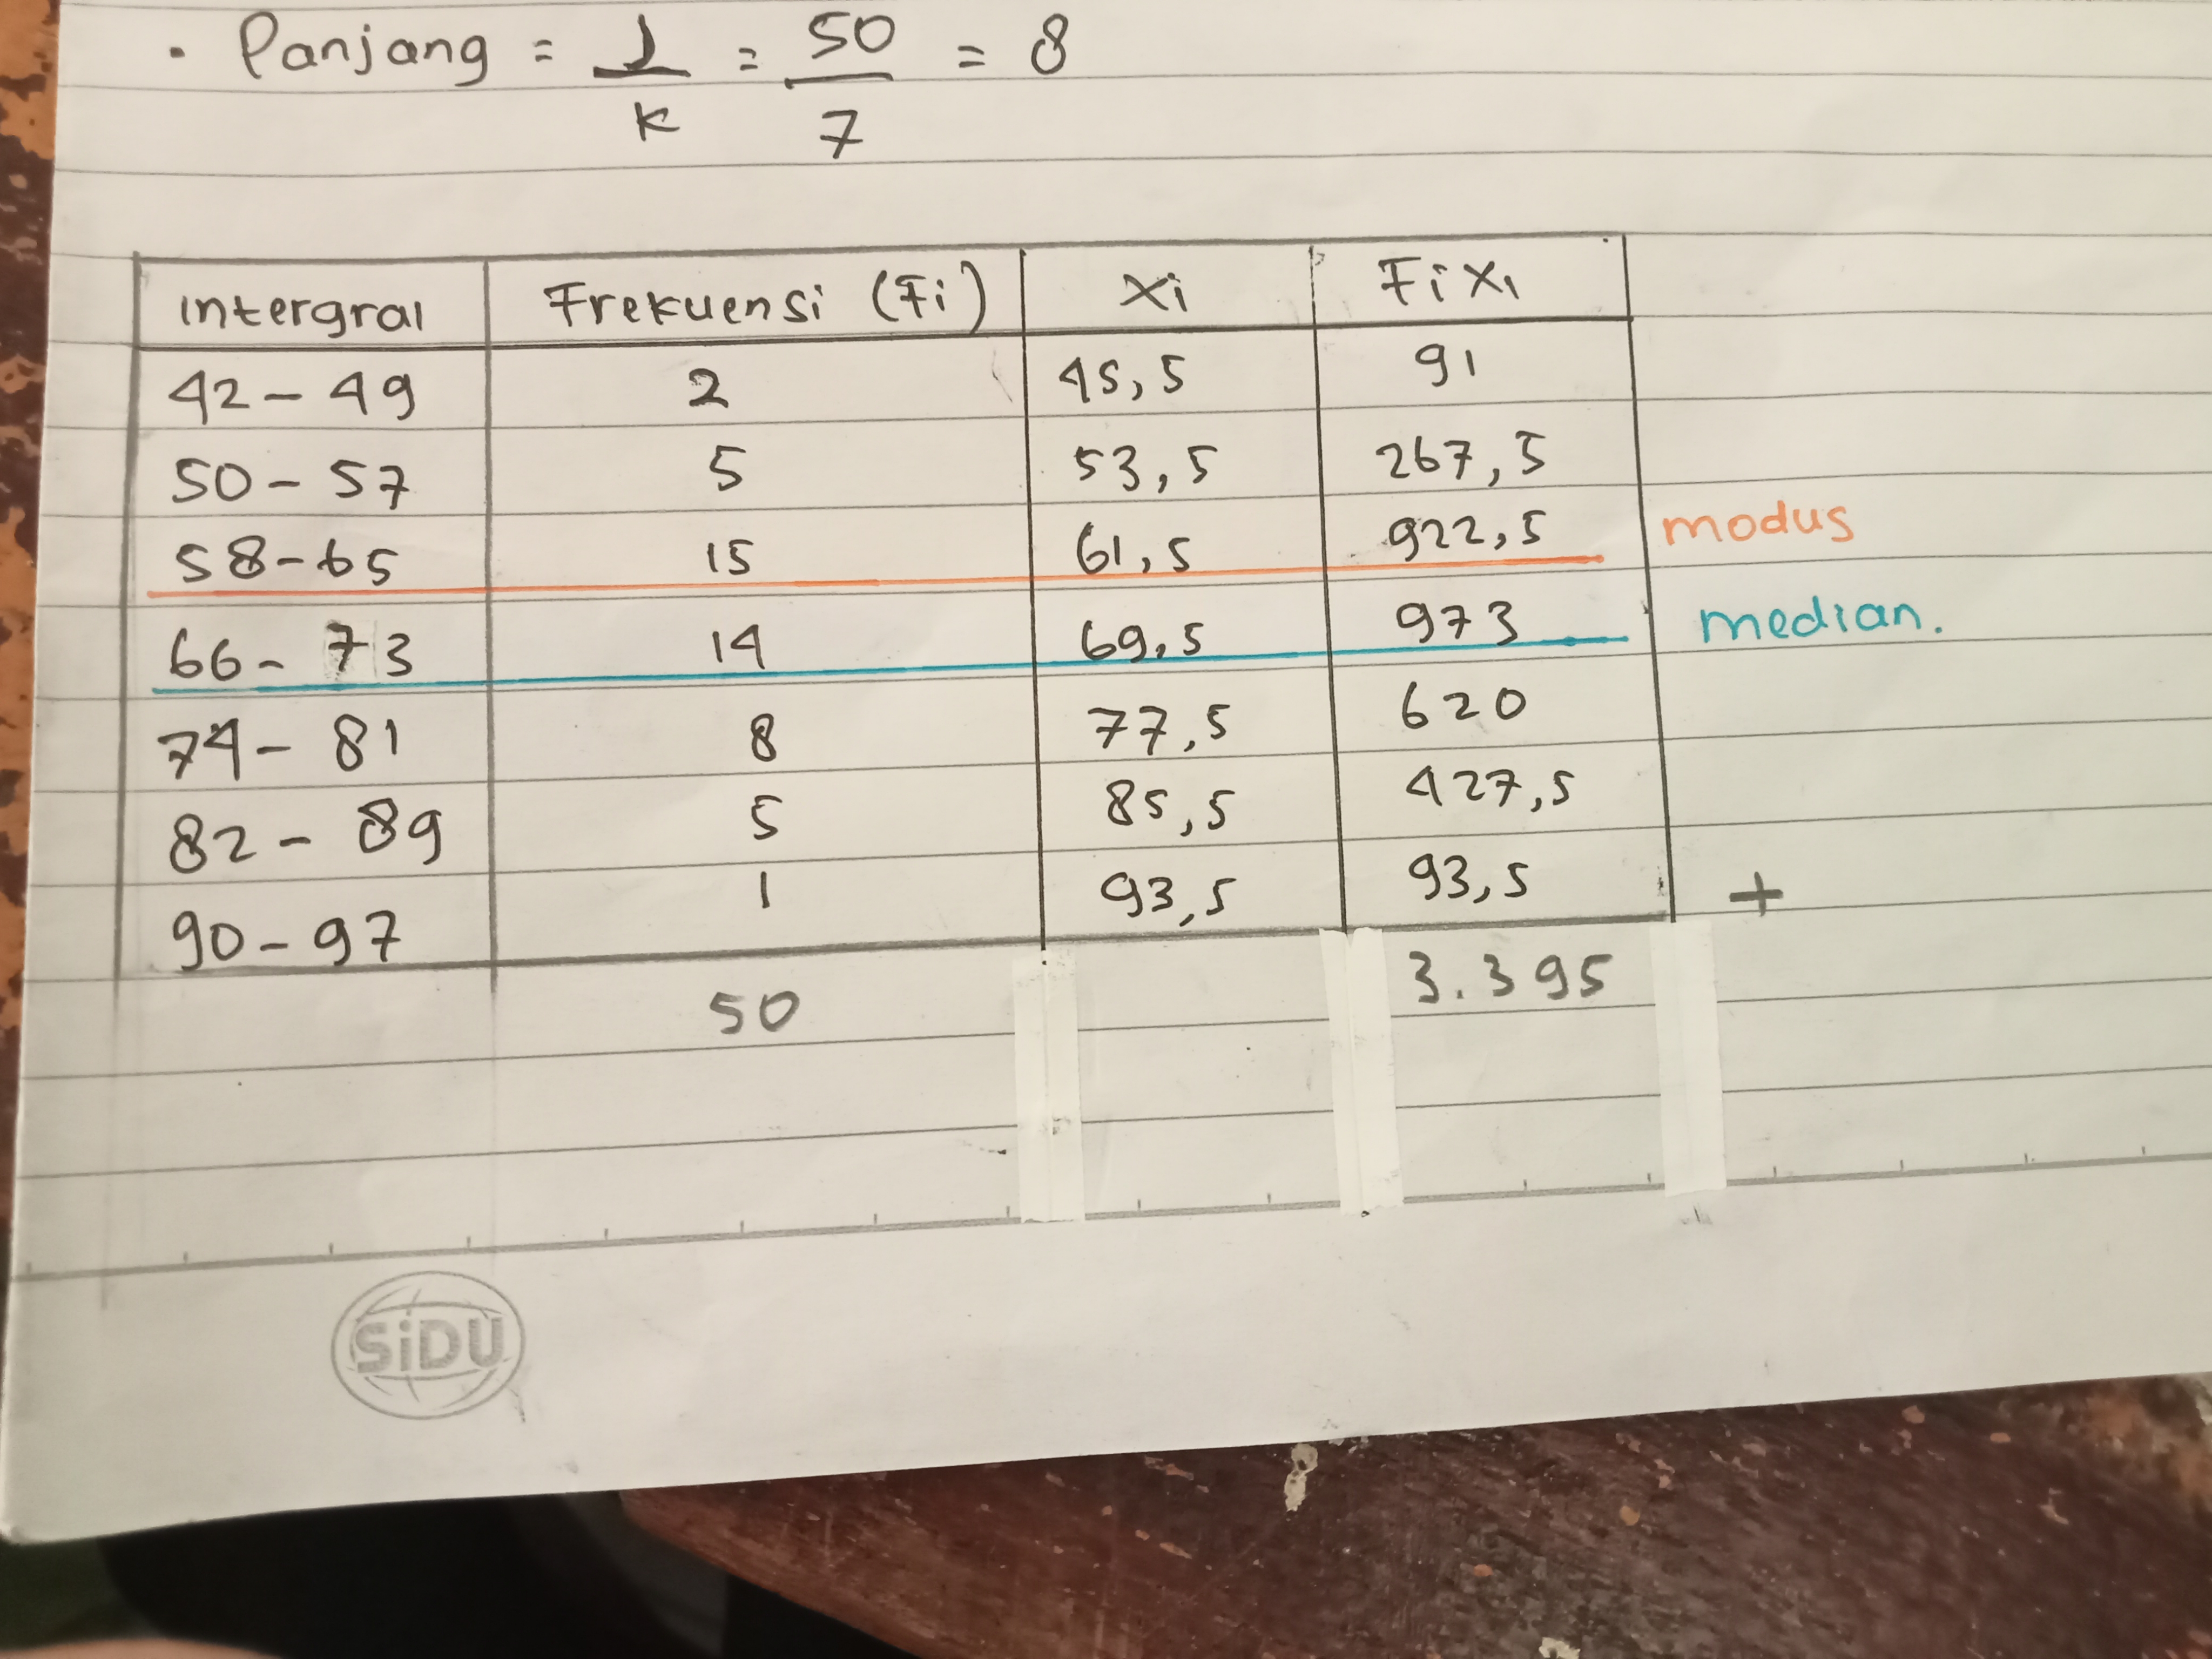 • Panjang = J = 50 = 8
K 7
Intergral Frekuensi (Fi) Xi Fi Xi
42 - 49 2 45,5 91
50 - 57 5 53,5 267,5
58 - 65 15 61,5 922,5 modus
66 - 73 14 69,5 973 median.
74 - 81 8 77,5 620
82 - 89 5 85,5 427,5
90 - 97 1 93,5 93,5 +
50 3.395
SiDU